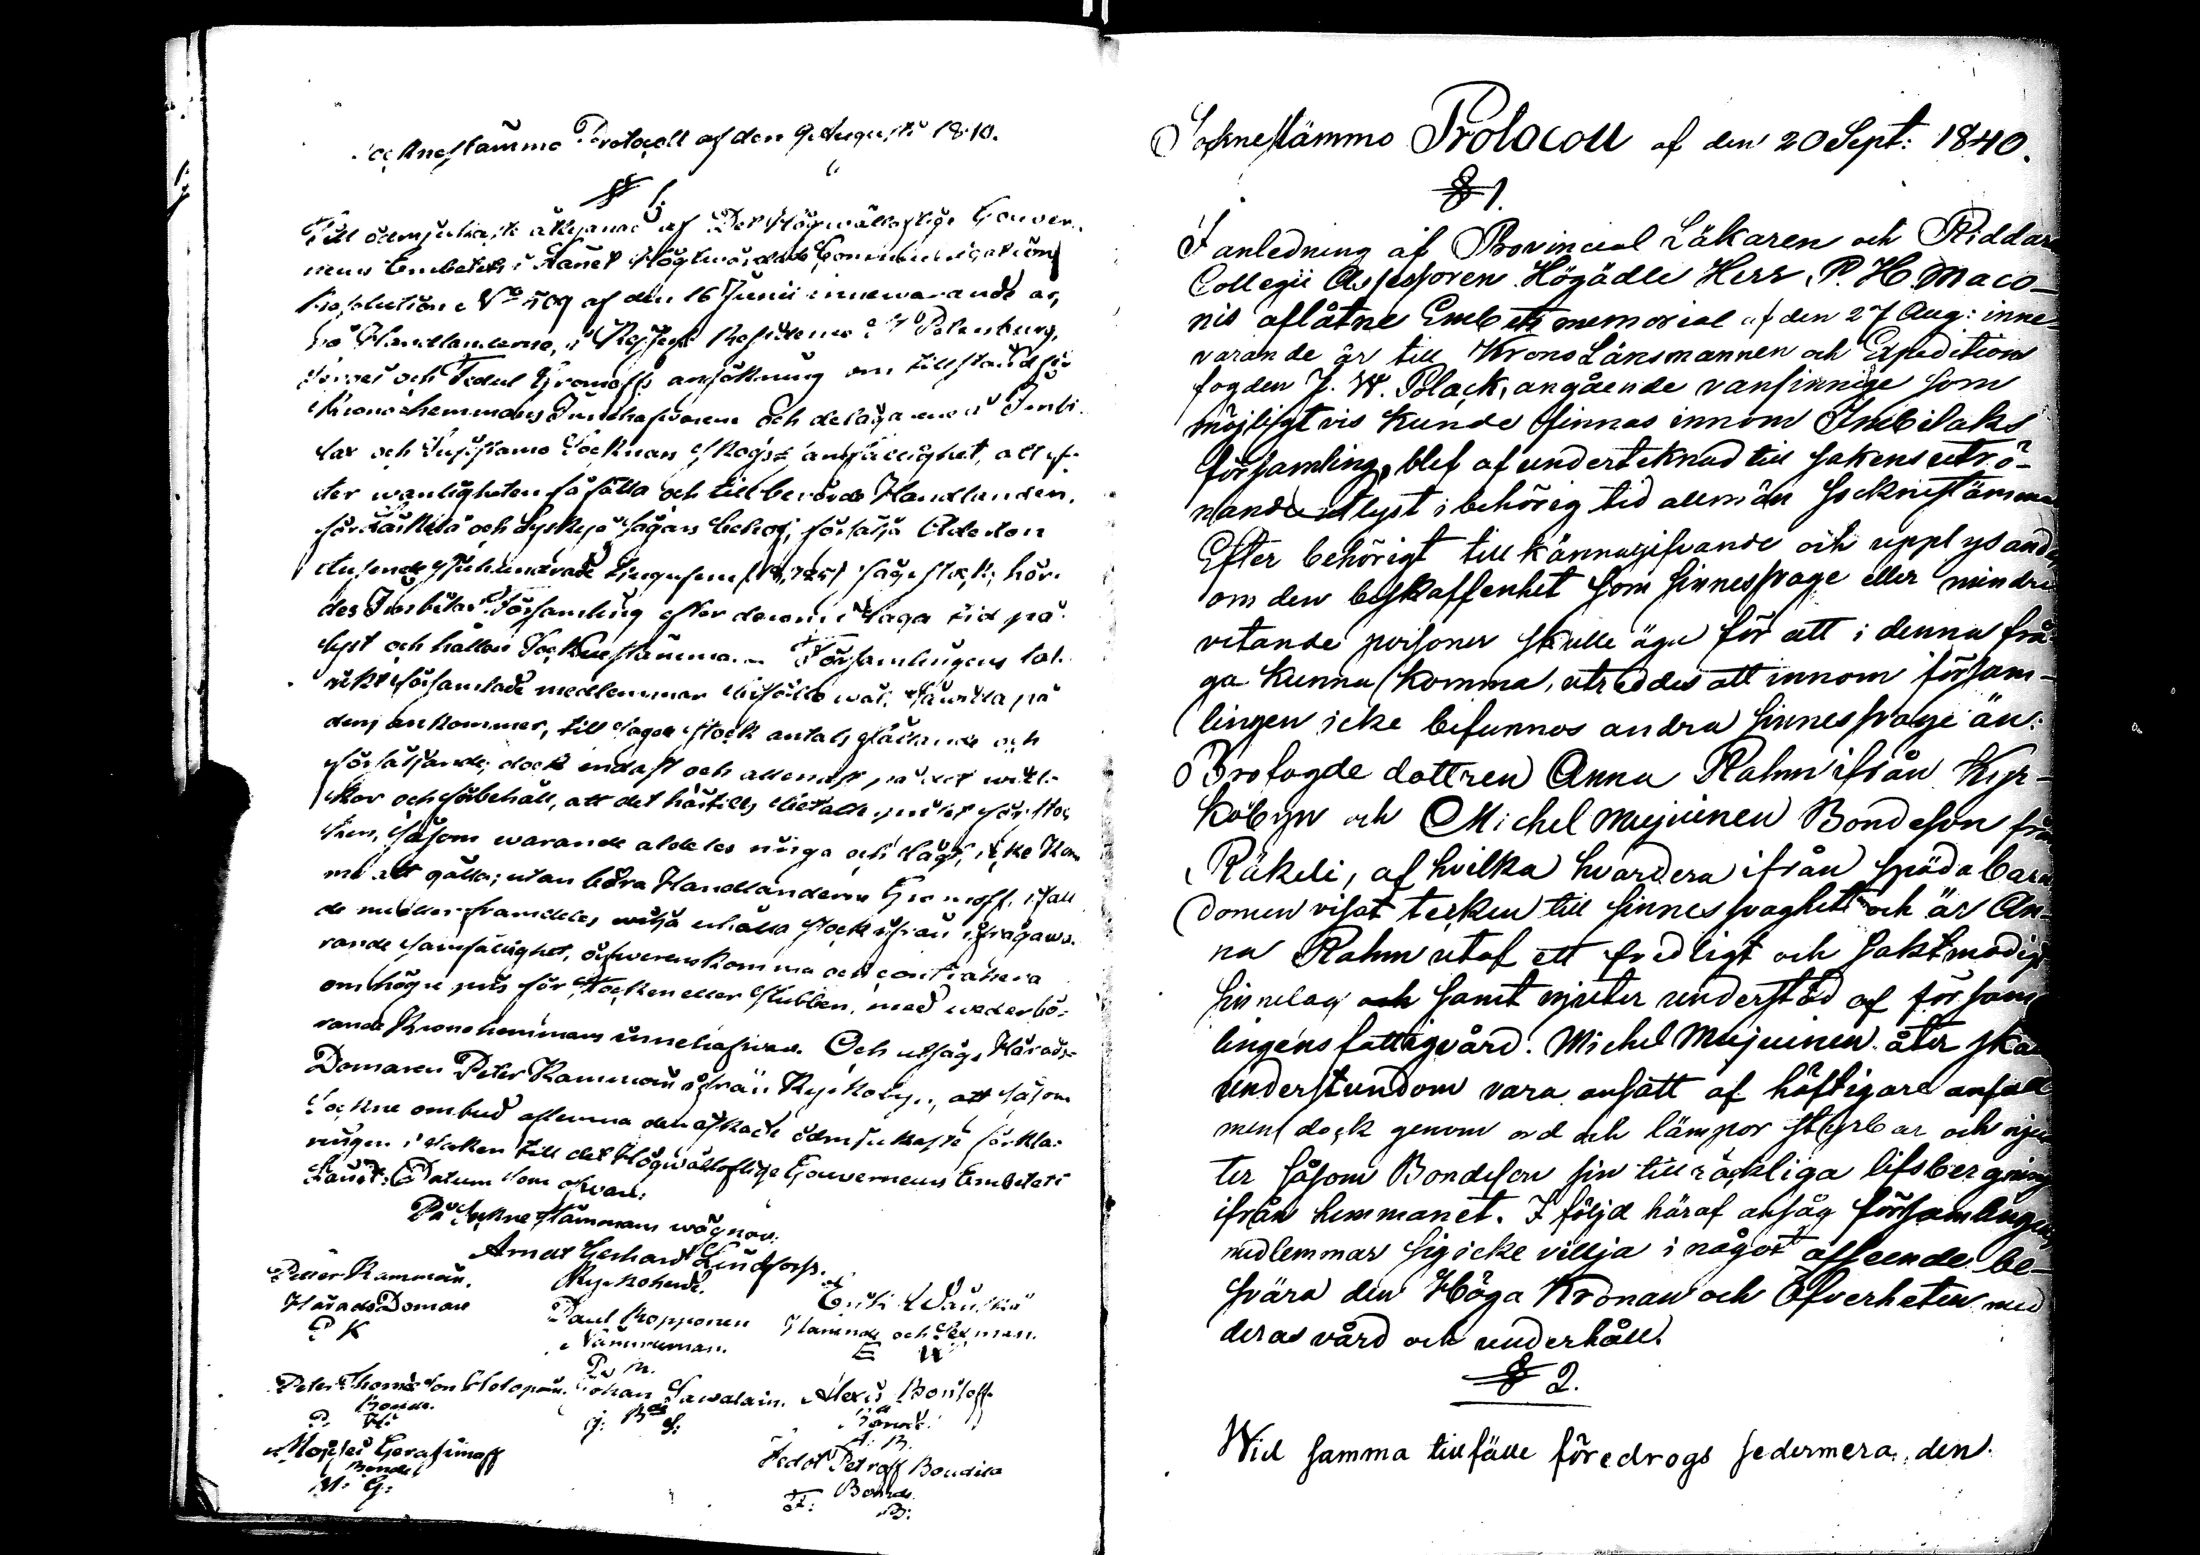 Socknestämmo Protocoll af den 9 Augusti 1840.
§ 1.
Till ödmjukaste åtlydnad af Det Högwällofliga Gouver-
nements Embetets i Länet Högtwördade Communications
Resolution N:o 509 af den 16 Junii innewarande år,
på Handlanderne, i Residence St Petersburg,
och Fedul Gromoffs ansökning om tillstånd för
Kronohemmans Innehafvarene och delägarene i Imbi-
lax och Suistamo Socknars skogs samfällighet, att ef-
ter wanligheten få fälla och till berörde Handlander,
för Läskelä och Leppäsyrjä sågars behof, försälja Aderton
tusende sjuhundrade tjugufem (18,725) sågstock; hör-
des Imbilax Församling efter derom i laga tid på-
lyst och hållen Sockne stämma. Församlingens tal-
rikt församlade medlemmar biföllo wäl, hwad på
dem ankommer, till sagde stock antals fällande och
försäljande, dock endast och allenast på det will-
kor och förbehåll, att det härtills betalte priset för stoc-
ken, såsom warande aldeles ringa och lågt, icke kom-
me att gälla; utan böra Handlanderne Gromoff, ifall
de nu eller framdeles wilja erhålla stock ifrån ifrågawa-
rande samfällighet, öfwerenskomma och contrahera
om högre pris för stocken eller stubben, med wederbö-
rande Kronohemmans innehafware. Och utsågs Härads-
Domaren Peter Rammoin ifrån Kyrkoby, att såsom
Sockne ombud aflemna den äskade ödmjukaste förkla-
ringen i saken till det Högwällofliga Gouvernements Embetet i
Länet. Datum som ofvan.
På Sockne stämmans wägnar.
Arndt Gerhard Lindforss.
Kyrkoherde.
Petter Rammoin.
Härads Domare
P K
Paul Ropponen
Nämndeman.
P. R.
Erik
och Sexman.
E W
Peter Thomasson Holopain.
Bonde.
P. H.
Johan Sawalain.
J: Bde S:
Alexei Bonsoff
Bonde.
A: B.
Moysei Gerasimoff
Bonde
M: G:
Fedot Petroff Boudiloi
Bonde.
F: B:
Sockne stämmo Protocoll af den 20 Sept: 1840.
§ 1.
I anledning af Provincial Läkaren och Riddar
Collegii Assessoren Högädle Herr P. H. Maco-
nis aflåtne Embets memorial af den 27 Aug: inne-
varande år till Krono Länsmannen och Expeditions
fogden J. W. Black, angående vansinnige som
möjligtvis kunde finnas innom Imbilaks
församling, blef af undertecknad till sakens utrö-
nande utlyst i behörig tid allmän Socknestämma
Efter behörigt tillkännagifvande och upplysande,
om den beskaffenhet som sinnessvage eller mindre
vetande personer skulle äga för att i denna frå-
ga kunna komma, utreddes att innom försam-
lingen icke befunnos andra sinnessvage än:
Brofogde dottren Anna Rahm ifrån Kyr-
kobyn och Michel Mujuinen Bondeson från
Räkeli, af hvilka hvardera ifrån späda barn
domen visat tecken till sinnessvaghet och är An-
na Rahm utaf ett fredligt och saktmodigt
sinnelag och samt njuter understöd af försam
lingens fattigvård. Michel Mujuinen åter skall
understundom vara ansatt af häftigare anfall
men dock genom ord och lämpor styrbar och nju-
ter såsom Bondeson sin tillräckliga lifsbergning
ifrån hemmanet. I följd häraf ansåg församlingens
medlemmar sig icke villja i något afseende be-
svära den Höga Kronan och Öfverheten med
deras vård och underhåll.
§ 2.
Wid samma tillfälle föredrogs sedermera, den